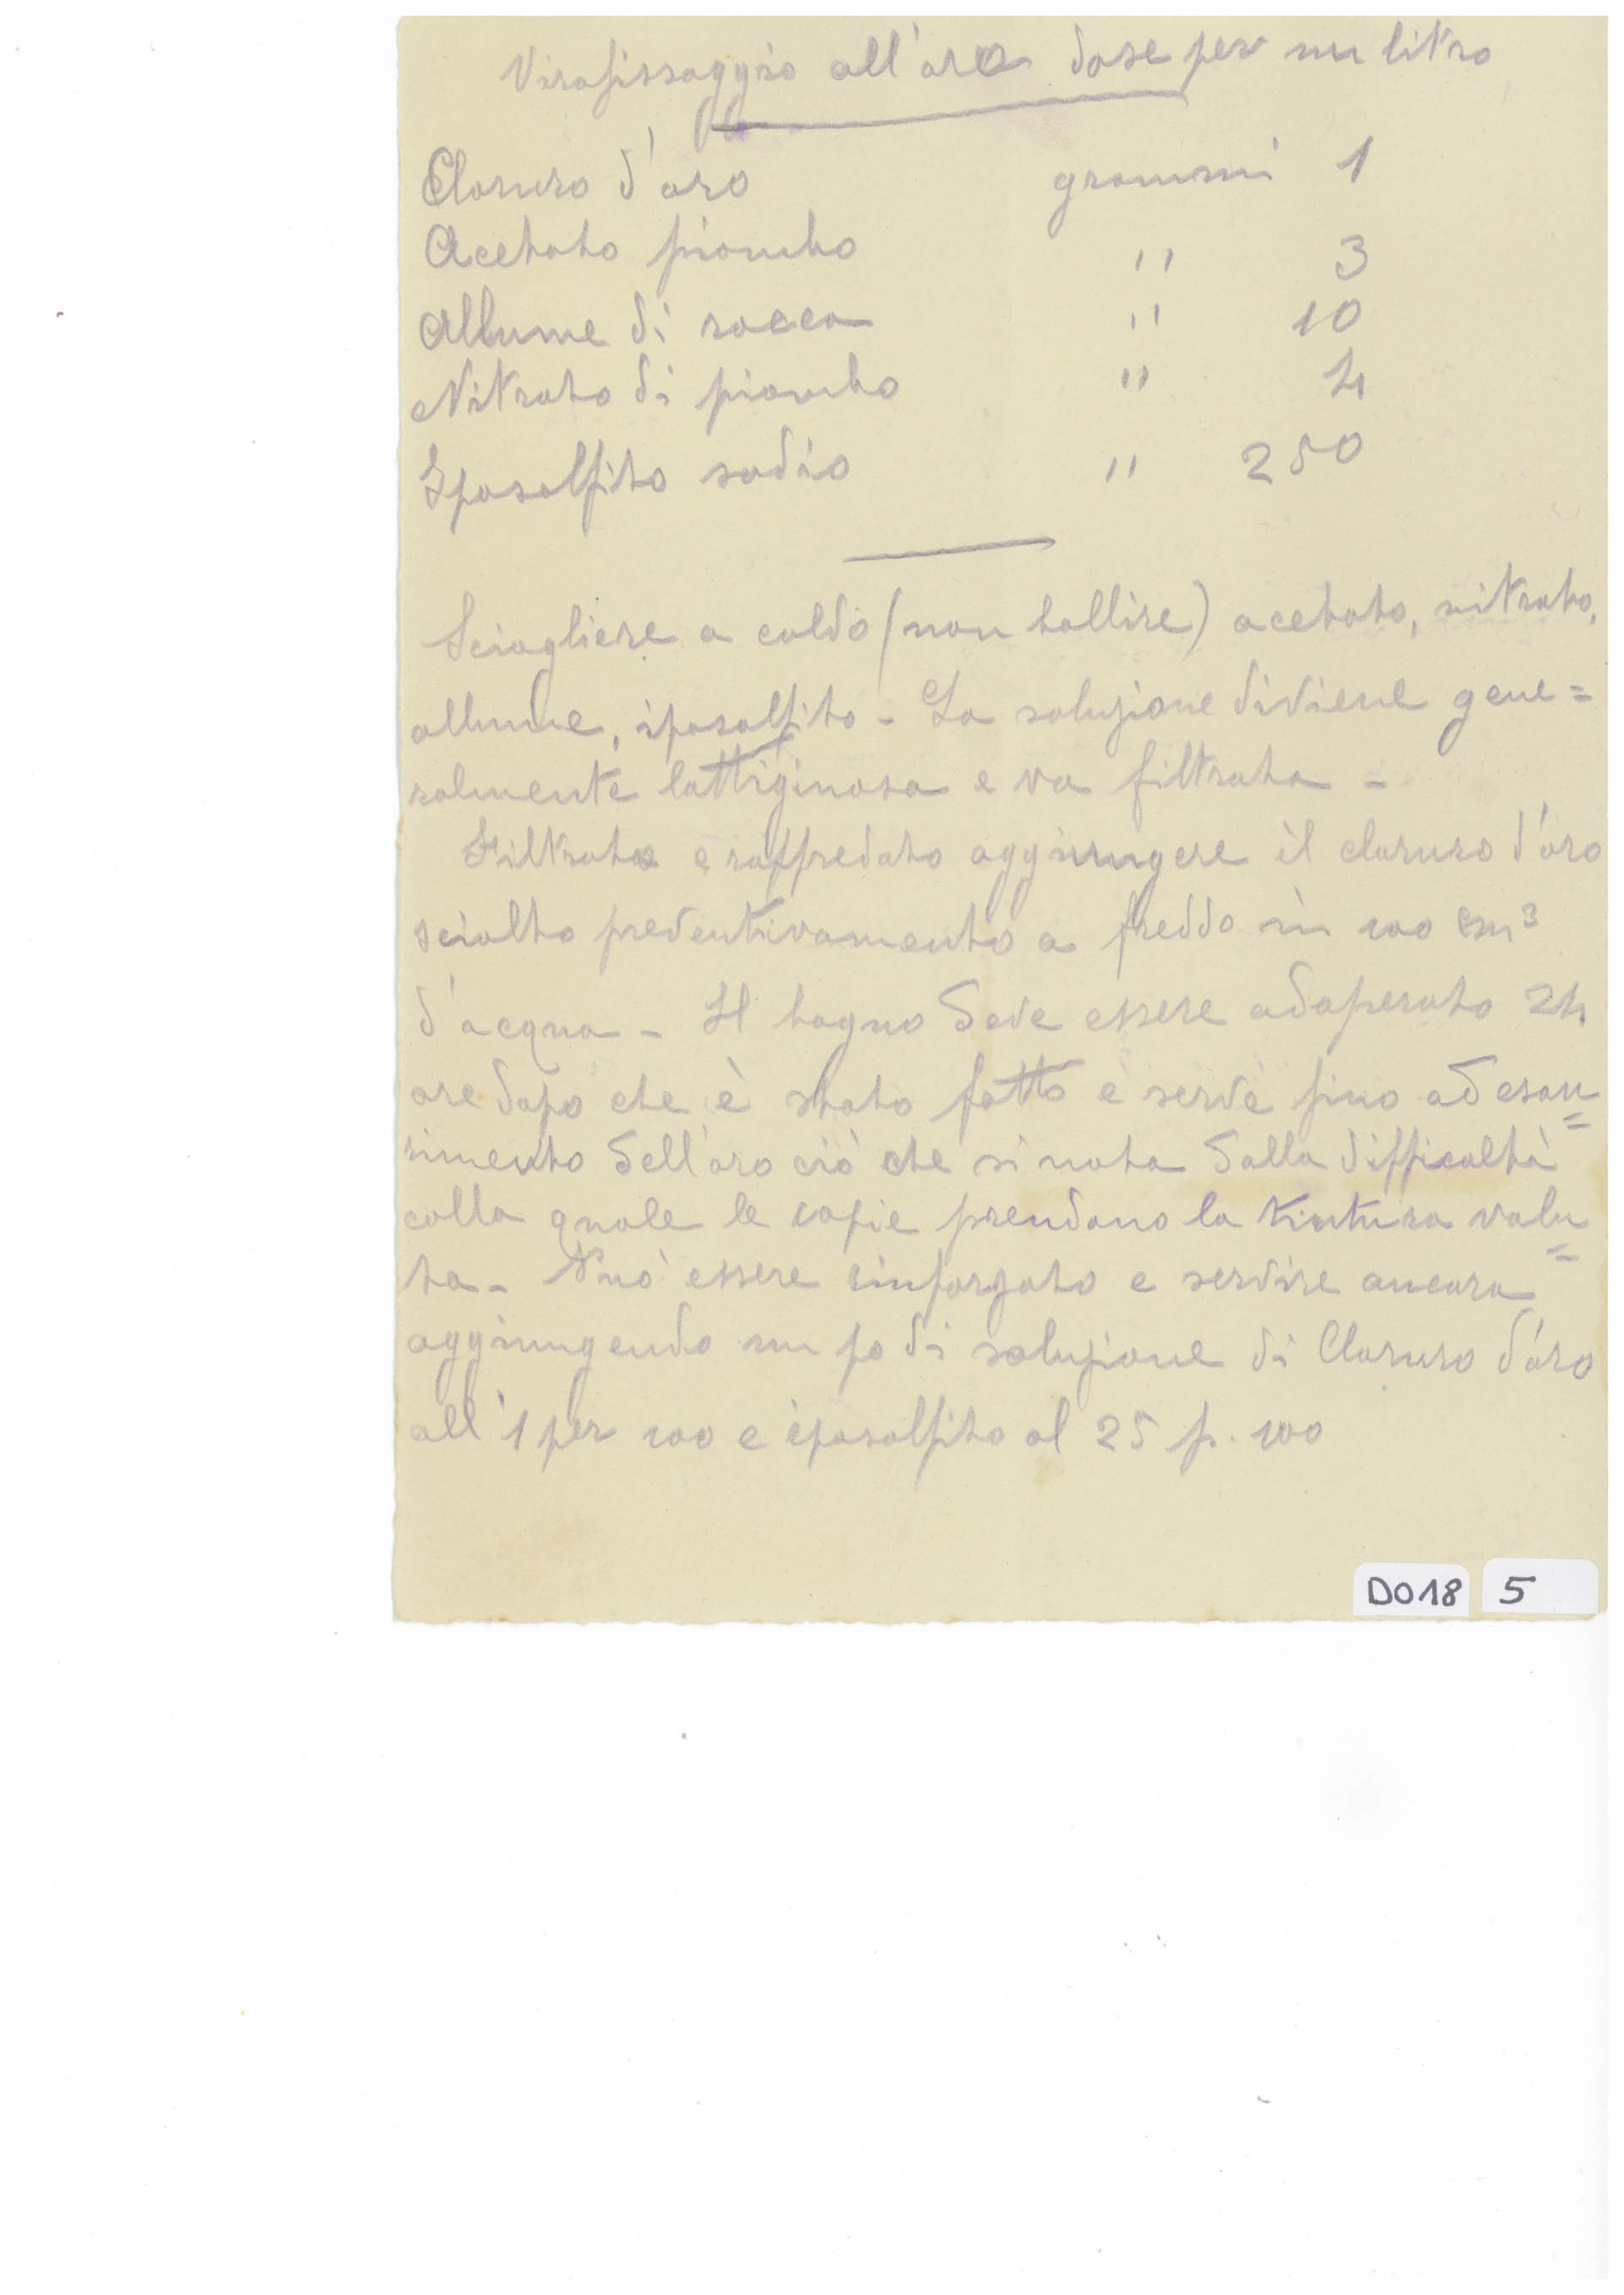 Virofissaggio all'oro dose per un litro
Cloruro d'oro grammi 1
Acetato piombo " 3
Allume di rocca " 10
Nitrato di piombo " 4
Iposolfito sodio " 250
Sciogliere a caldo (non bollire) acetato, nitrato,
allume, iposolfito - La soluzione diviene gene=
ralmente lattiginosa e va filtrata -
Filtrato e raffredato aggiungere il cloruro d'oro
sciolto preventivamento a freddo in 100 cm³
d'acqua - Il bagno deve essere adoperato 24
ore dopo che è stato fatto e serve fino ad esau=
rimento dell'oro ciò che si nota dalla difficoltà
colla quale le copie prendono la tintura volu=
ta - Può essere rinforzato e servire ancora
aggiungendo un po di soluzione di Cloruro d'oro
all'1 per 100 e iposolfito al 25 p. 100
D018 5